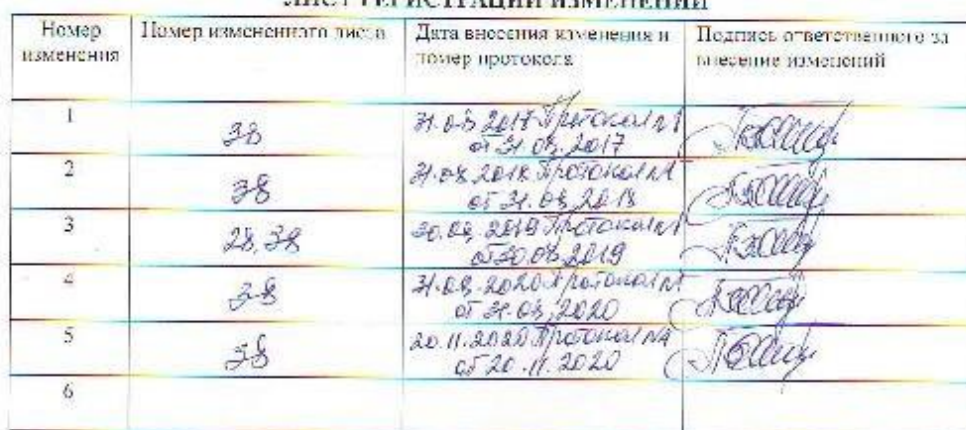 ЛИСТ РЕГИСТРАЦИИ ИЗМЕНЕНИЙ
Номер изменения
Номер измененного листа
Дата внесения изменения и номер протокола
Подпись ответственного за внесение изменений
1
38
31.08.2017 Протокол №1
от 31.08.2017
2
38
31.08.2018 Протокол №1
от 31.08.2018
3
28, 38
30.08.2019 Протокол №1
от 30.08.2019
4
38
31.08.2020 Протокол №1
от 31.08.2020
5
38
20.11.2020 Протокол №4
от 20.11.2020
6